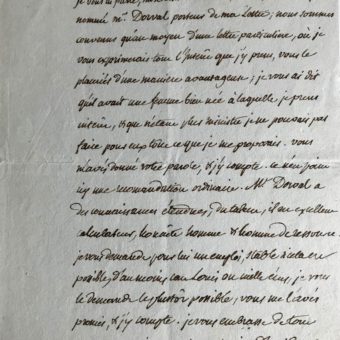 je vous ai parlé,
nommé Mr. Dorval porteur de ma Lettre; nous sommes
convenus qu'au moyen d'une lettre particuliere, où je
vous exprimerais tout l'Interêt que j'y prens, vous le
placeriés d'une maniere avantageuse; je vous ai dit
qu'il avait une femme bien née à laquelle je prens
interêt, & que n'étant plus ministre je ne pouvais pas
faire pour eux tout ce que je me proposais. vous
m'avés donné votre parole, & j'y compte. ce n'est point
icy une recomandation ordinaire. Mr. Dorval a
des connaissances étendues, du talent, il est excellent
calculateur, honnête homme & homme de ressource.
je vous demande pour lui un emploi, stable
possible, d'au moins cent Louis ou mille écus, je vous
le demande le plustôt possible, vous me l'avés
promis, & j'y compte. je vous embrasse de tout